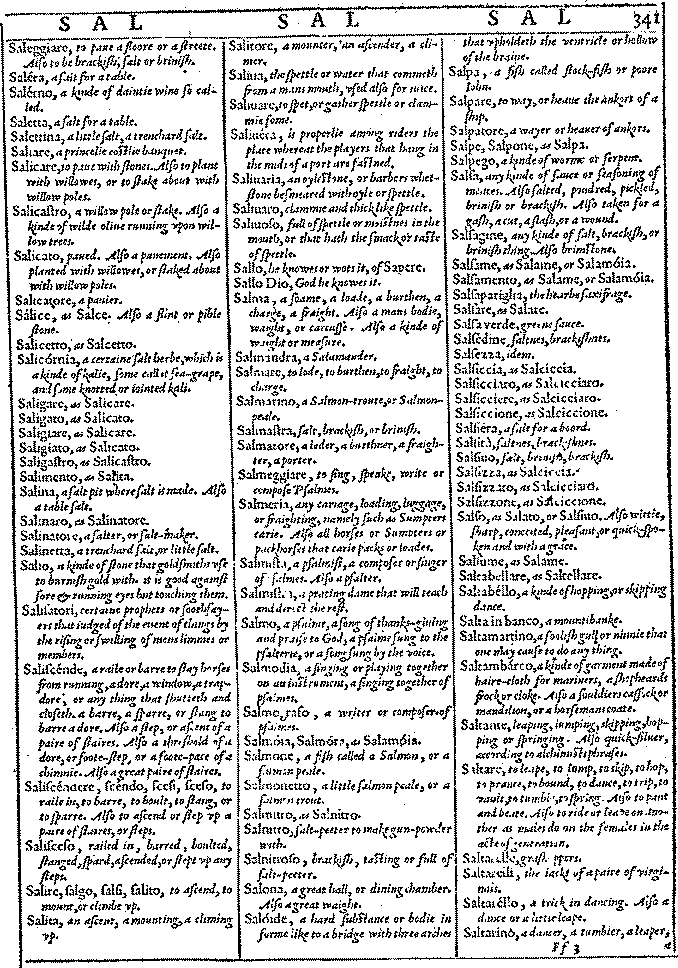 S A L
S A L
S A L
341
Saleggiare, to paue a floore or a streete.
Also to be brackish, salt or brinish.
Saléra, a salt for a table.
Salérno, a kinde of daintie wine so cal-
led.
Saletta, a salt for a table.
Salettina, a little salt, a trenchard salt.
Saliare, a princelie costlie banquet.
Salicare, to paue with stones. Also to plant
with willowes, or to stake about with
willow poles.
Salicastro, a willow pole or stake. Also a
kinde of wilde oliue running vpon wil-
low trees.
Salicato, paued. Also a pauement. Also
planted with willowes, or staked about
with willow poles.
Salicatore, a pauier.
Sálice, as Salce. Also a flint or pible
stone.
Salicetto, as Salcetto.
Salicórnia, a certaine salt herbe, which is
a kinde of kalie, some call it sea-grape,
and some knotted or iointed kali.
Saligare, as Salicare.
Saligato, as Salicato.
Saligiare, as Salicare.
Saligiato, as Salicato.
Saligastro, as Salicastro.
Salimento, as Salita.
Salina, a salt pit where salt is made. Also
a table salt.
Salinaro, as Salinatore.
Salinatore, a salter, or salt-maker.
Salinetta, a trenchard salt, or little salt.
Salio, a kinde of stone that goldsmiths vse
to burnish gold with. it is good against
sore or running eyes but touching them.
Salisatori, certaine prophets or soothsay-
ers that iudged of the euent of things by
the rising or swelling of mens limmes or
members.
Saliscénde, a raile or barre to stay horses
from running, a dore, a window, a trap-
dore, or any thing that shutteth and
closeth. a barre, a sparre, or stang to
barre a dore. Also a step, or ascent of a
paire of staires. Also a threshold of a
dore, or foote-step, or a foote-pace of a
chimnie. Also a great paire of staires.
Saliscéndere, scendo, scesi, sceso, to
raile in, to barre, to boult, to stang, or
to sparre. Also to ascend or step vp a
paire of staires, or steps.
Salisceso, railed in, barred, boulted,
stanged, spard, ascended, or stept vp any
steps.
Salire, salgo, salsi, salito, to ascend, to
mount, or climbe vp.
Salita, an ascent, a mounting, a climing
vp.
Salitore, a mounter, an ascender, a cli-
mer.
Saliua, the spettle or water that commeth
from a mans mouth, vsed also for iuice.
Saliuare, to spet, or gather spettle or clam-
mie fome.
Saliuéra, is properlie among riders the
place where the players that hang in
the midst of a port are fastned.
Saliuaria, an oylestone, or barbers whet-
stone besmeared with oyle or spettle.
Saliuaro, clammie and thick like spettle.
Saliuoso, full of spettle or moistnes in the
mouth, or that hath the smack or taste
of spettle.
Sallo, he knowes or wots it, of Sapere.
Sallo Dio, God he knowes it.
Salma, a soame, a loade, a burthen, a
charge, a fraight. Also a mans bodie,
waight, or carcasse. Also a kinde of
weight or measure.
Salmandra, a Salamander.
Salmare, to lode, to burthen, to fraight, to
charge.
Salmarino, a Salmon-troute, or Salmon-
peale.
Salmastra, salt, brackish, or brinish.
Salmatore, a loder, a burthner, a fraigh-
ter, a porter.
Salmeggiare, to sing, speake, write or
compose Psalmes.
Salmeria, any cariage, loading, luggage,
or fraighting, namely such as Sumpters
carie. Also all horses or Sumpters or
packhorses that carie packs or loades.
Salmista, a psalmist, a composer or singer
of psalmes. Also a psalter.
Salmistra, a prating dame that will teach
and direct the rest.
Salmo, a psalme, a song of thanks-giuing
and praise to God, a psalme sung to the
psalterie, or a song sung by the voice.
Salmodía, a singing or playing together
on an instrument, a singing together of
psalmes.
Salmografo, a writer or composer of
psalmes.
Salmóia, Salmóra, as Salamóia.
Salmone, a fish called a Salmon, or a
salmon peale.
Salmonetto, a little salmon peale, or a
salmon trout.
Salnitro, as Salnitro.
Salnitro, salt-peeter to make gun-powder
with.
Salnitroso, brackish, tasting or full of
salt-peeter.
Salona, a great hall, or dining chamber.
Also a great waight.
Salóide, a hard substance or bodie in
forme like to a bridge with three arches
that vpholdeth the ventricle or hollow
of the braine.
Salpa, a fish called stock-fish or poore
Iohn.
Salpare, to way, or heaue the ankors of a
ship.
Salpatore, a wayer or heauer of ankors.
Salpe, Salpone, as Salpa.
Salpego, a kinde of worme or serpent.
Salsa, any kinde of sauce or seasoning of
meates. Also salted, poudred, pickled,
brinish or brackish. Also taken for a
gash, a cut, a slash, or a wound.
Salsagine, any kinde of salt, brackish, or
brinish thing. Also brimstone.
Salsame, as Salame, or Salamóia.
Salsamento, as Salame, or Salamóia.
Salsapariglia, the hearbe saxifrage.
Salsare, as Salare.
Salsa verde, greene sauce.
Salsédine, saltnes, brackishnes.
Salsezza, idem.
Salsiccia, as Salciccia.
Salsicciaro, as Salcicciaro.
Salsicciere, as Salcicciaro.
Salsiccione, as Salciccione.
Salsiera, a salt for a boord.
Salsità, saltnes, brackishnes.
Salsiuo, salt, brinish, brackish.
Salsizza, as Salciccia.
Salsizzaro, as Salcicciaro.
Salsizzone, as Salciccione.
Salso, as Salato, or Salsiuo. Also wittie,
sharp, conceited, pleasant, or quick-spo-
ken and with a grace.
Salsume, as Salame.
Saltabellare, as Saltellare.
Saltabéllo, a kinde of hopping, or skipping
dance.
Salta in banco, a mountibanke.
Saltamartino, a foolish gull or ninnie that
one may cause to do any thing.
Saltambárco, a kinde of garment made of
haire-cloth for mariners, a shepheards
frock or cloke. Also a souldiers cassick or
mandilion, or a horseman coate.
Saltante, leaping, iumping, skipping, hop-
ping or springing. Also quick-siluer,
according to alchimists phrases.
Saltare, to leape, to iump, to skip, to hop,
to prance, to bound, to dance, to trip, to
vault, to tumble, to spring. Also to pant
and beate. Also to ride or leape on ano-
ther as males do on the females in the
acte of generation.
Saltarelle, grass-hoppers.
Saltarelli, the iacks of a paire of virgi-
nals.
Saltaréllo, a trick in dancing. Also a
dance or a little leape.
Saltarino, a dancer, a tumbler, a leaper,
Ff 3
a